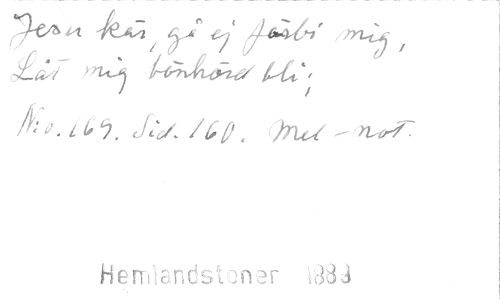 Jesu kär, gå ej förbi mig,
Låt mig bönhörd bli;
N:o. 169. Sid. 160. Mel-not.
Hemlandstoner 1883